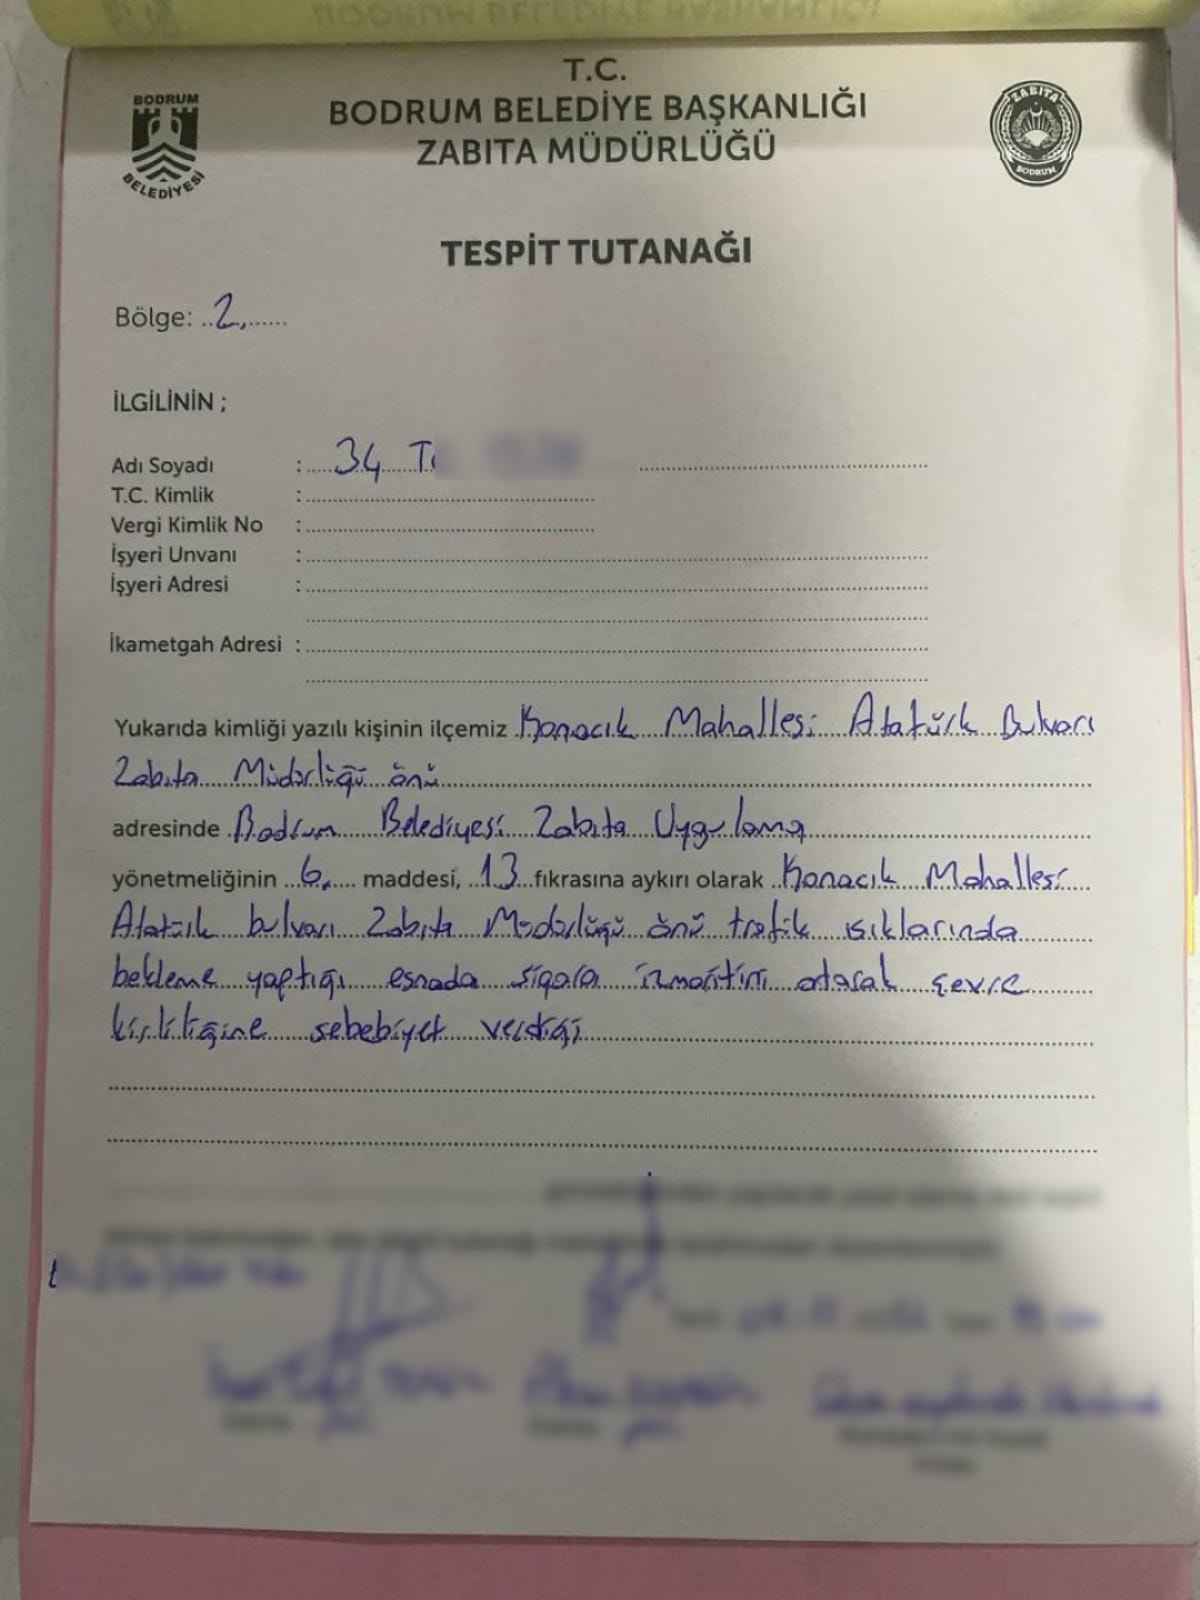 T.C.
BODRUM BELEDİYE BAŞKANLIĞI
ZABITA MÜDÜRLÜĞÜ
BODRUM
BELEDİYESİ
ZABITA
BODRUM
TESPİT TUTANAĞI
Bölge: 2.
İLGİLİNİN ;
Adı Soyadı : 34 T
T.C. Kimlik :
Vergi Kimlik No :
İşyeri Unvanı :
İşyeri Adresi :
İkametgah Adresi :
Yukarıda kimliği yazılı kişinin ilçemiz Konacık Mahallesi Atatürk Bulvarı
Zabıta Müdürlüğü önü
adresinde Bodrum Belediyesi Zabıta Uygulama
yönetmeliğinin 6. maddesi, 13 fıkrasına aykırı olarak Konacık Mahallesi
Atatürk bulvarı Zabıta Müdürlüğü önü trafik ışıklarında
bekleme yaptığı esnada sigara izmaritini atarak çevre
kirliliğine sebebiyet verdiği